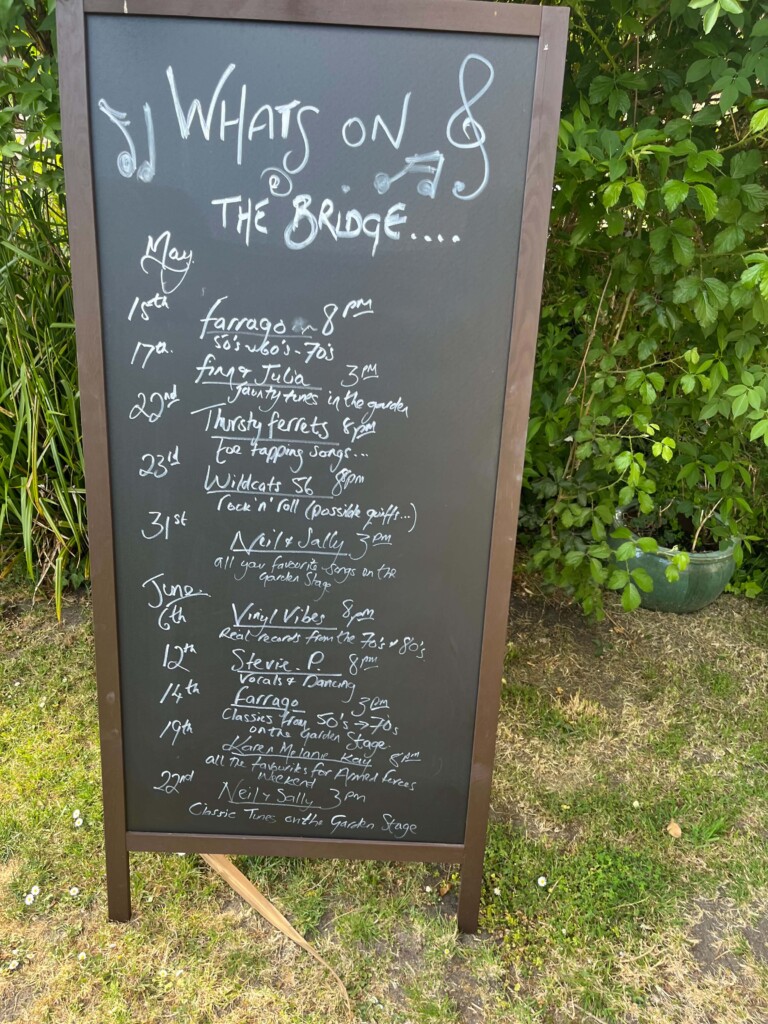 WHATS ON
@
THE BRIDGE....
May
15th Farrago ~ 8pm
50's ~ 60's - 70's
17th. Finn & Julia 3pm
Jaunty tunes in the garden
22nd Thirsty ferrets 8pm
Toe tapping songs...
23rd Wildcats 56 8pm
rock'n'roll (possible quiffs...)
31st Neil & Sally 3pm
all your favourite songs on the
Garden Stage
June
6th Vinyl Vibes 8pm
Real records from the 70's & 80's
12th Stevie. P 8pm
Vocals & Dancing
14th Farrago 3pm
Classics from 50's → 70s
on the Garden Stage
19th Karen Melanie Kay 8pm
all the favourites for Armed Forces
Weekend
22nd Neil & Sally 3pm
Classic Tunes on the Garden Stage